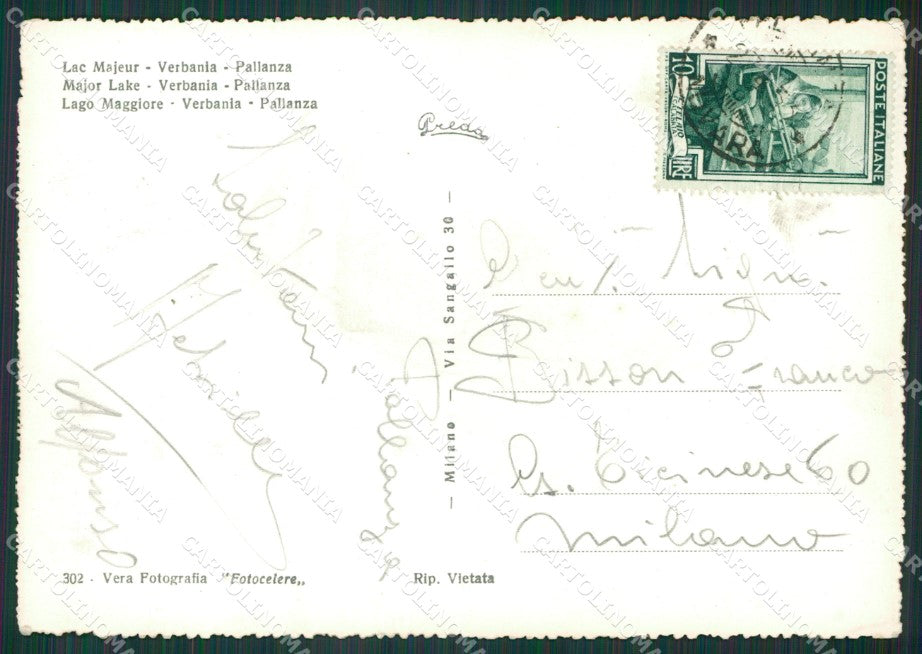 Lac Majeur - Verbania - Pallanza
Major Lake - Verbania - Pallanza
Lago Maggiore - Verbania - Pallanza
Preda
10
LIRE
POSTE ITALIANE
Saluti
Alfonso
Pallanza
— Milano — Via Sangallo 30 —
Gent. Sign.
Bisson Franco
Cs. Ticinese 60
Milano
302 - Vera Fotografia "Fotocelere„
Rip. Vietata
CARTOLINOMANIA